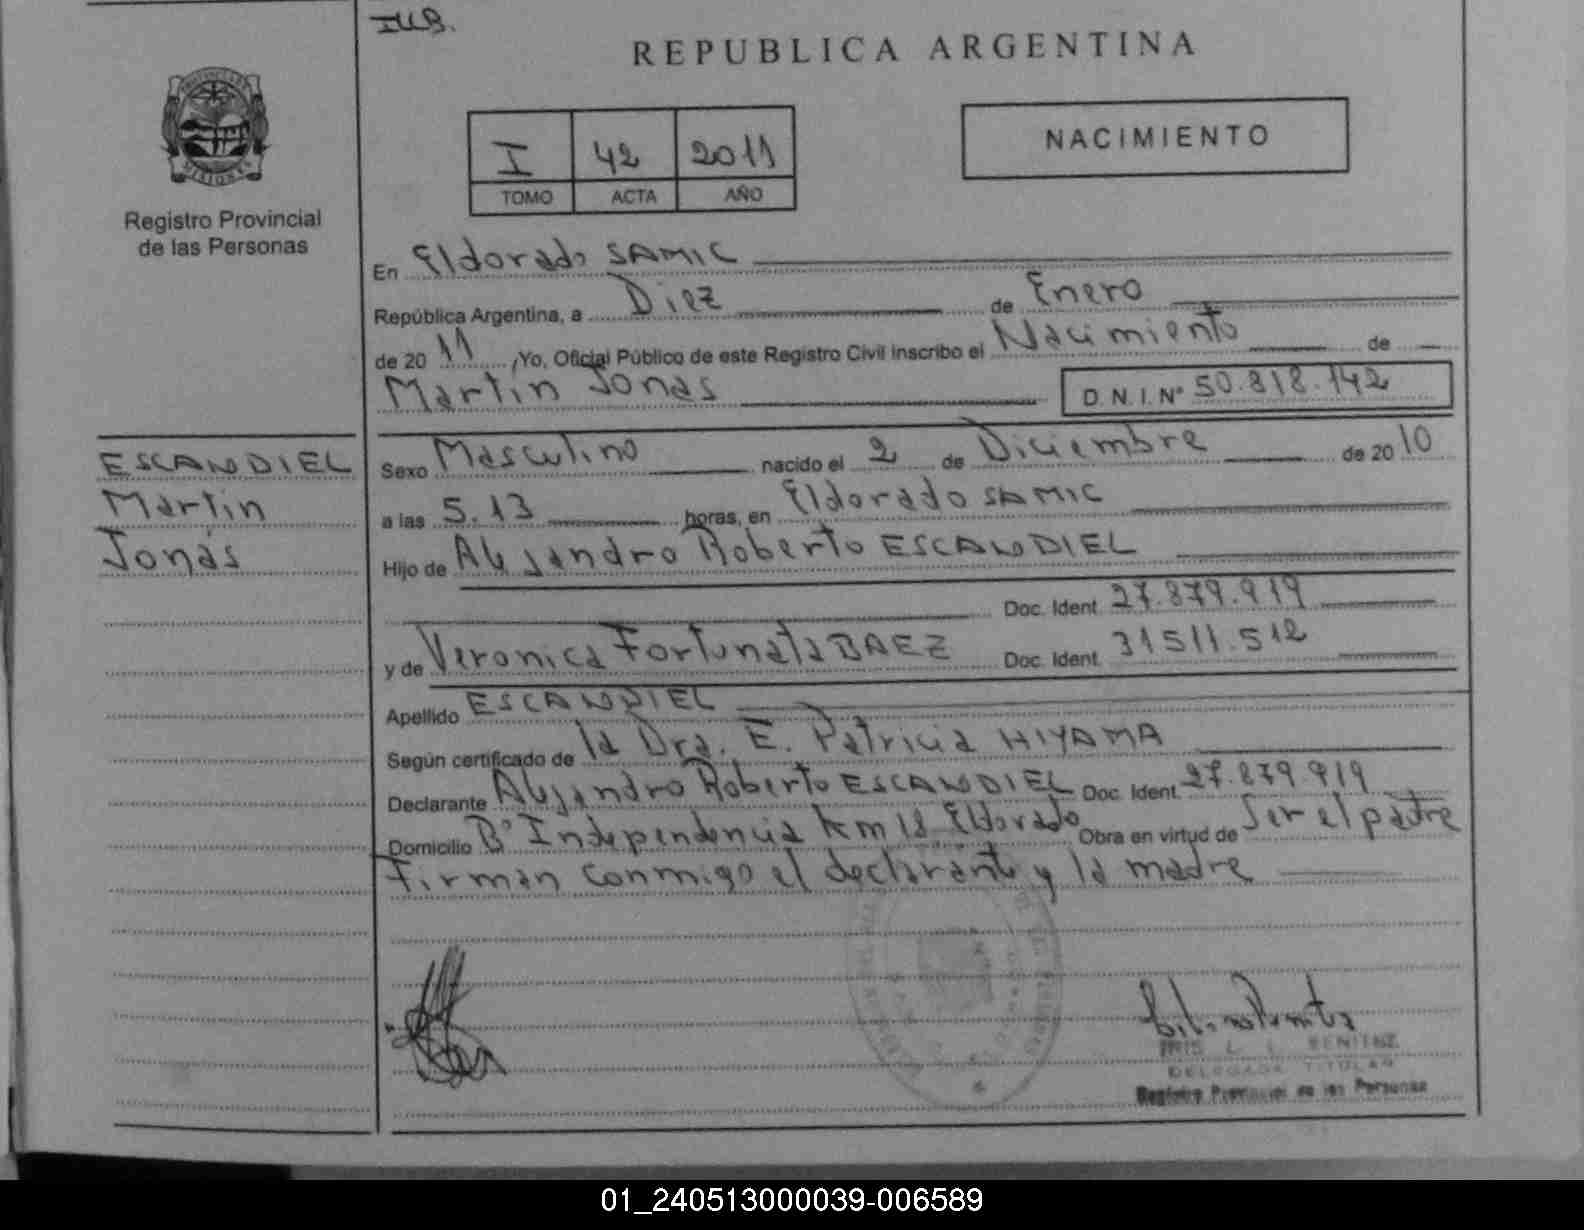 I.U.B.
REPUBLICA ARGENTINA
PROVINCIA DE
MISIONES
I 42 2011
TOMO ACTA AÑO
NACIMIENTO
Registro Provincial
de las Personas
En Eldorado SAMIC
República Argentina, a Diez de Enero
de 2011, Yo, Oficial Público de este Registro Civil inscribo el Nacimiento de
Martin Jonas D. N. I. Nº 50.818.142
ESCANDIEL
Martin
Jonás
Sexo Masculino nacido el 2 de Diciembre de 2010
a las 5.13 horas, en Eldorado SAMIC
Hijo de Alejandro Roberto ESCANDIEL
Doc. Ident. 27.879.919
y de Veronica Fortunata BAEZ Doc. Ident. 31511.512
Apellido ESCANDIEL
Según certificado de la Dra. E. Patricia HIYAMA
Declarante Alejandro Roberto ESCANDIEL Doc. Ident. 27.879.919
Domicilio Bº Independencia km 18 Eldorado Obra en virtud de Ser el padre
Firman conmigo el declarante y la madre
IRIS L. I. BENITEZ
DELEGADA TITULAR
Registro Provincial de las Personas
01_240513000039-006589